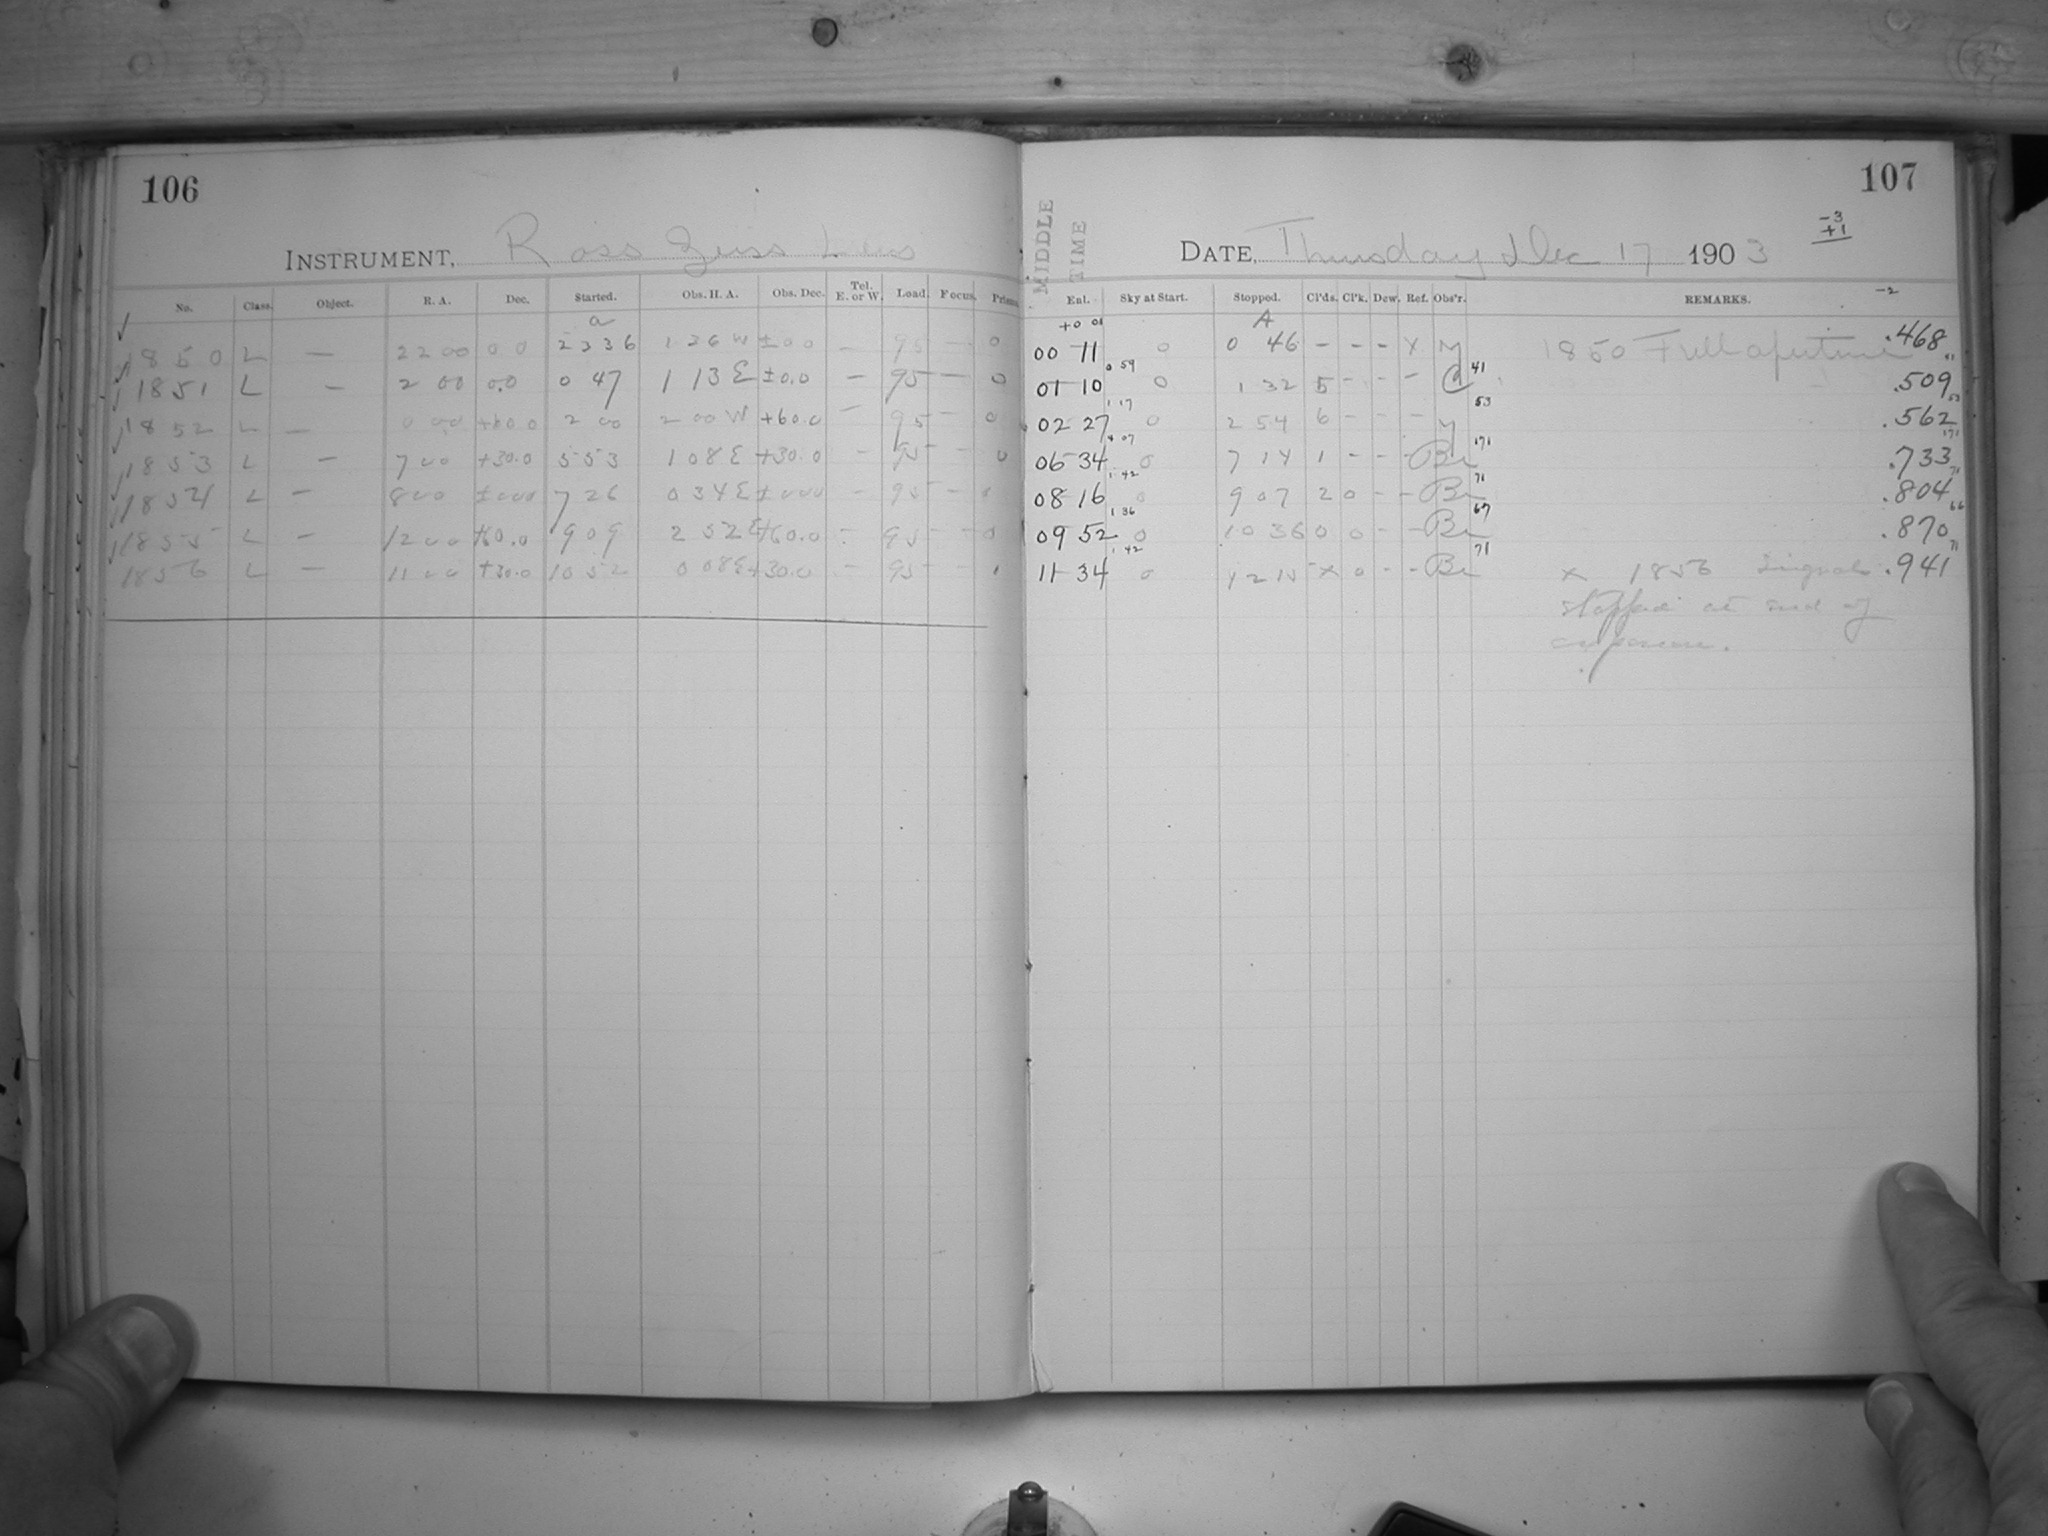 106
INSTRUMENT, Ross Zeiss Lens
No. Class. Object. R. A. Dec. Started. Obs. H. A. Obs. Dec. Tel. E. or W. Load. Focus. Prism.
a
1850 L — 22 00 0 0 23 36 1 36 W ±0 0 — 95 — 0
1851 L — 2 00 0.0 0 47 1 13 E ±0.0 — 95 — 0
1852 L — 0 00 +60 0 2 00 2 00 W +60.0 — 95 — 0
1853 L — 7 00 +30.0 5 53 1 08 E +30.0 — 95 — 0
1854 L — 8 00 ±000 7 26 0 34 E ±000 — 95 —
1855 L — 12 00 +60.0 9 09 2 52 E +60.0 — 95 — 0
1856 L — 11 00 +30.0 10 52 0 08 E +30.0 — 95 —
107
MIDDLE TIME
DATE, Thursday Dec 17 1903
-3
+1
Enl. Sky at Start. Stopped. Cl'ds. Cl'k. Dew. Ref. Obs'r. REMARKS. -2
+0 01 A
00 11 0 0 46 - - - x y 1850 Full aperture .468
0 59 41 41
01 10 0 1 32 5 - - - C .509
1 17 53 53
02 27 0 2 54 6 - - - y .562
4 07 171 171
06 34 0 7 14 1 - - - Br .733
1 42 71 71
08 16 0 9 07 2 0 - - Br .804
1 36 67 66
09 52 0 10 36 0 0 - - Br .870
1 42 71 71
11 34 0 12 15 x 0 - - Br x 1856 Signal .941
stopped at end of
exposure.